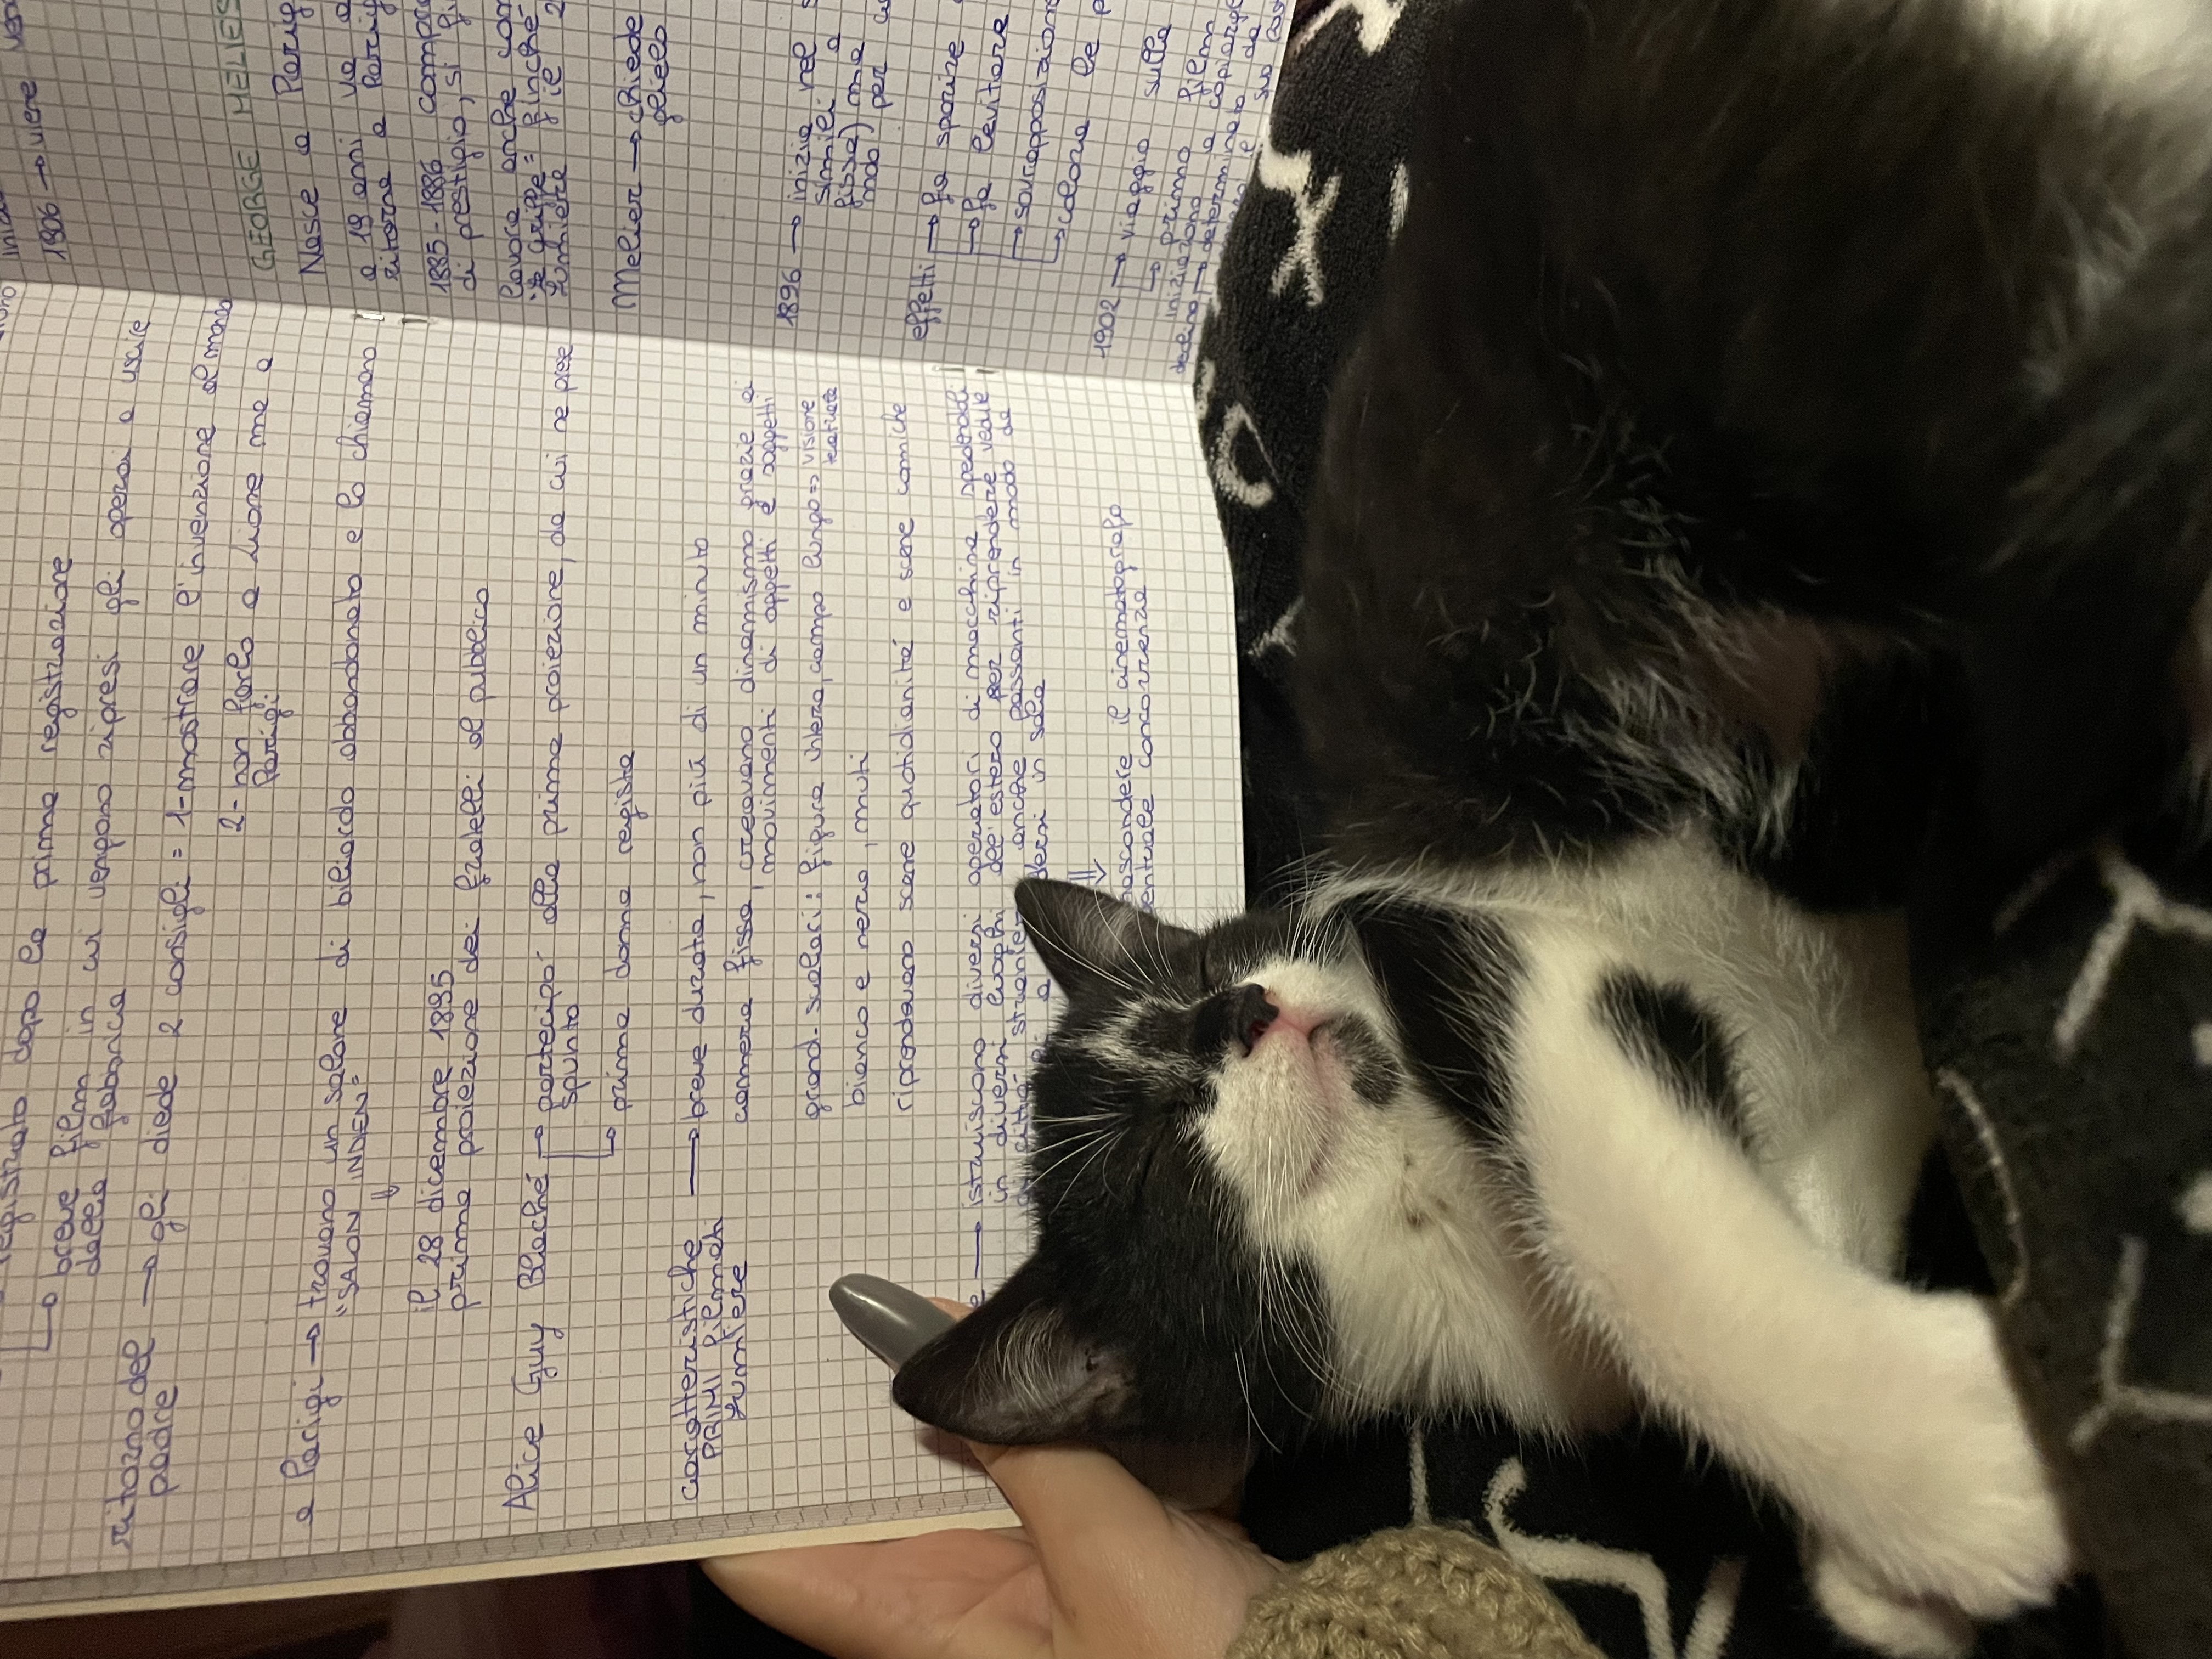 registrato dopo la prima registrazione
↳ breve film in cui vengono ripresi gli operai a uscire
della fabbrica
ritorno del → gli diede 2 consigli = 1-mostrare l'invenzione al mondo
padre
2-non farlo a Lione ma a
Parigi
a Parigi → trovano un salone di biliardo abbandonato e lo chiamano
"SALON INDEN"
⇓
il 28 dicembre 1895
prima proiezione dei fratelli al pubblico
Alice Guy Blaché → partecipò alla prima proiezione, da cui ne prese
spunto
↳ prima donna regista
caratteristiche → breve durata, non più di un minuto
PRIMI filmati
Lumiere
camera fissa, creavano dinamismo grazie ai
movimenti di oggetti e soggetti
grand. scalari: figura intera, campo lungo => visione
teatrale
bianco e nero, muti
riprendevano scene quotidianità e scene comiche
→ istruiscono diversi operatori di macchina, spedendoli
in diversi luoghi dell'estero per riprendere vedute
anche passanti in modo da
vedersi in sala
⇓
nascondere il cinematografo
eventuale concorrenza
1906 → viene
GEORGE MELIES
Nasce a Parigi
a 19 anni va a
ritorna a Parigi
1885-1886 compra
di prestigio, si
lavora anche con
"La Griffe" finché
Lumiere
Melier → chiede
glielo
1896 → inizia nel
simili a
fissa) ma
modo) per
effetti → fa sparire
→ fa levitare
→ sovrapposizione
→ colora le
1902 → viaggio sulla
↳ primo film
iniziarono a copiargli
declino → determinato da